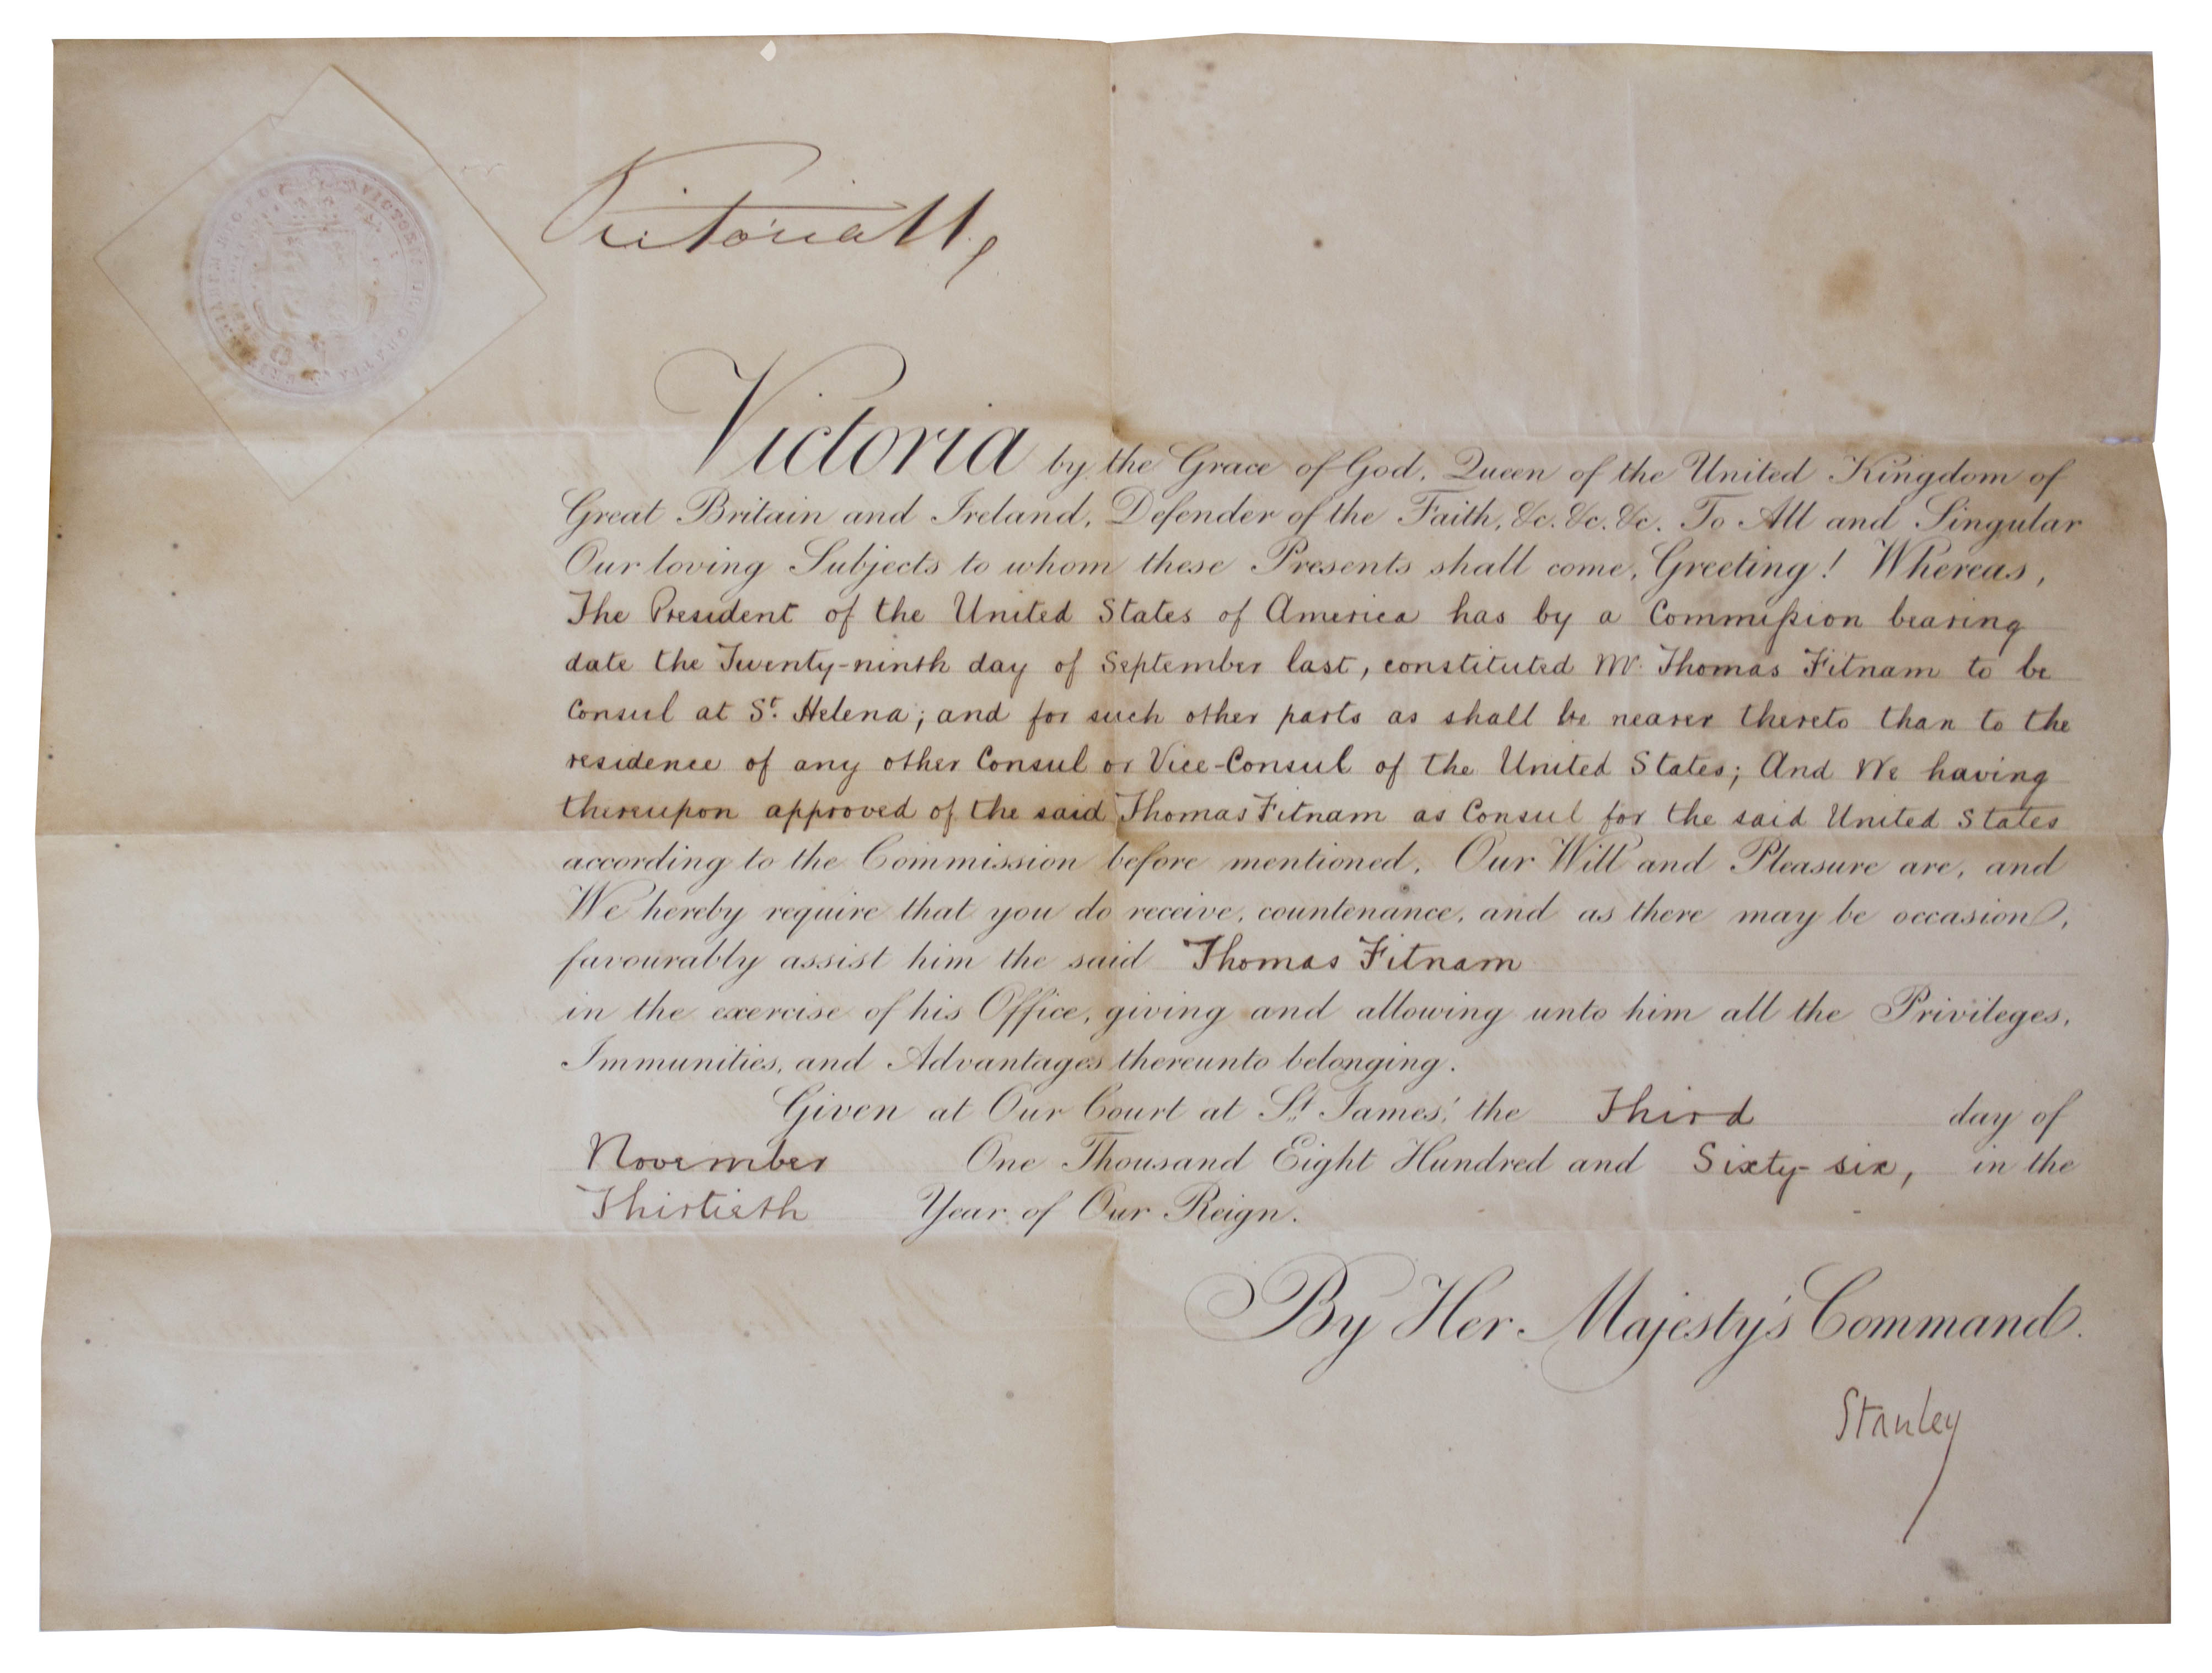 Victoria R
Victoria by the Grace of God, Queen of the United Kingdom of
Great Britain and Ireland, Defender of the Faith, &c. &c. &c. To All and Singular
Our loving Subjects to whom these Presents shall come, Greeting! Whereas,
The President of the United States of America has by a Commission bearing
date the Twenty-ninth day of September last, constituted Mr. Thomas Fitnam to be
Consul at St. Helena; and for such other parts as shall be nearer thereto than to the
residence of any other Consul or Vice-Consul of the United States; And We having
thereupon approved of the said Thomas Fitnam as Consul for the said United States
according to the Commission before mentioned, Our Will and Pleasure are, and
We hereby require that you do receive, countenance, and as there may be occasion,
favourably assist him the said Thomas Fitnam
in the exercise of his Office, giving and allowing unto him all the Privileges,
Immunities, and Advantages thereunto belonging.
Given at Our Court at St. James', the Third day of
November One Thousand Eight Hundred and Sixty-six, in the
Thirtieth Year of Our Reign.
By Her Majesty's Command.
Stanley